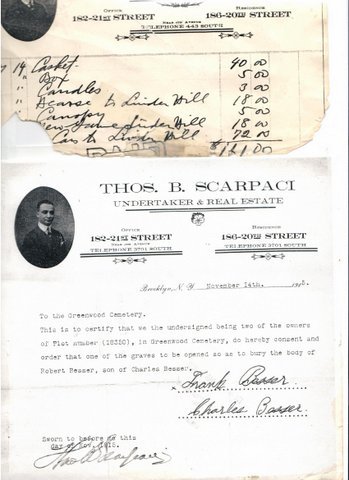 OFFICE
RESIDENCE
182-21ST STREET
186-20TH STREET
NEAR 4TH AVENUE
TELEPHONE 443 SOUTH
14 Casket 90 00
" Box 5 00
" Candles 3 00
" Hearse to Linden Hill 18 00
" Canopy 5 00
" Linden Hill 18 00
" Cars to Linden Hill 72 00
PAID
THOS. B. SCARPACI
UNDERTAKER & REAL ESTATE
OFFICE
RESIDENCE
182-21ST STREET
186-20TH STREET
NEAR 4TH AVENUE
TELEPHONE 3701 SOUTH
TELEPHONE 3701 SOUTH
Brooklyn, N.Y. November 14th. 1915.
To the Greenwood Cemetery.
This is to certify that we the undersigned being two of the owners
of Plot number (18320), in Greenwood Cemetery, do hereby consent and
order that one of the graves to be opened so as to bury the body of
Robert Besser, son of Charles Besser.
x Frank Besser
Charles Besser
Sworn to before me this
day of Nov. 1915.